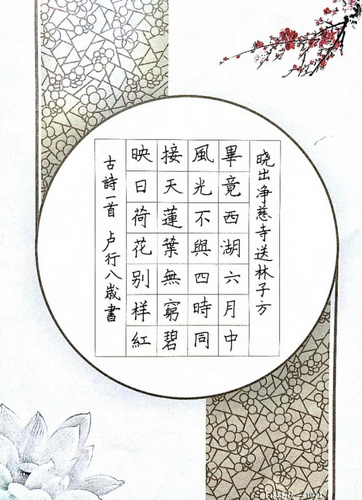 晓出净慈寺送林子方
畢竟西湖六月中
風光不與四時同
接天蓮葉無窮碧
映日荷花别样紅
古詩一首 卢行八歲書